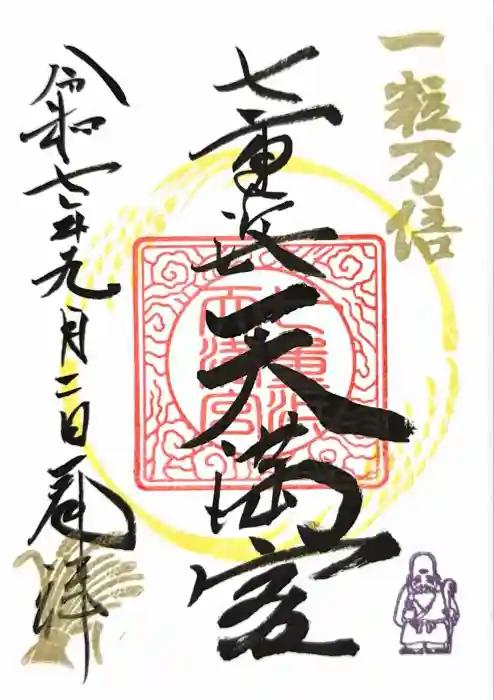 一粒万倍
七重浜天満宮
七重浜
天満宮
令和七年元月二日 奉拝